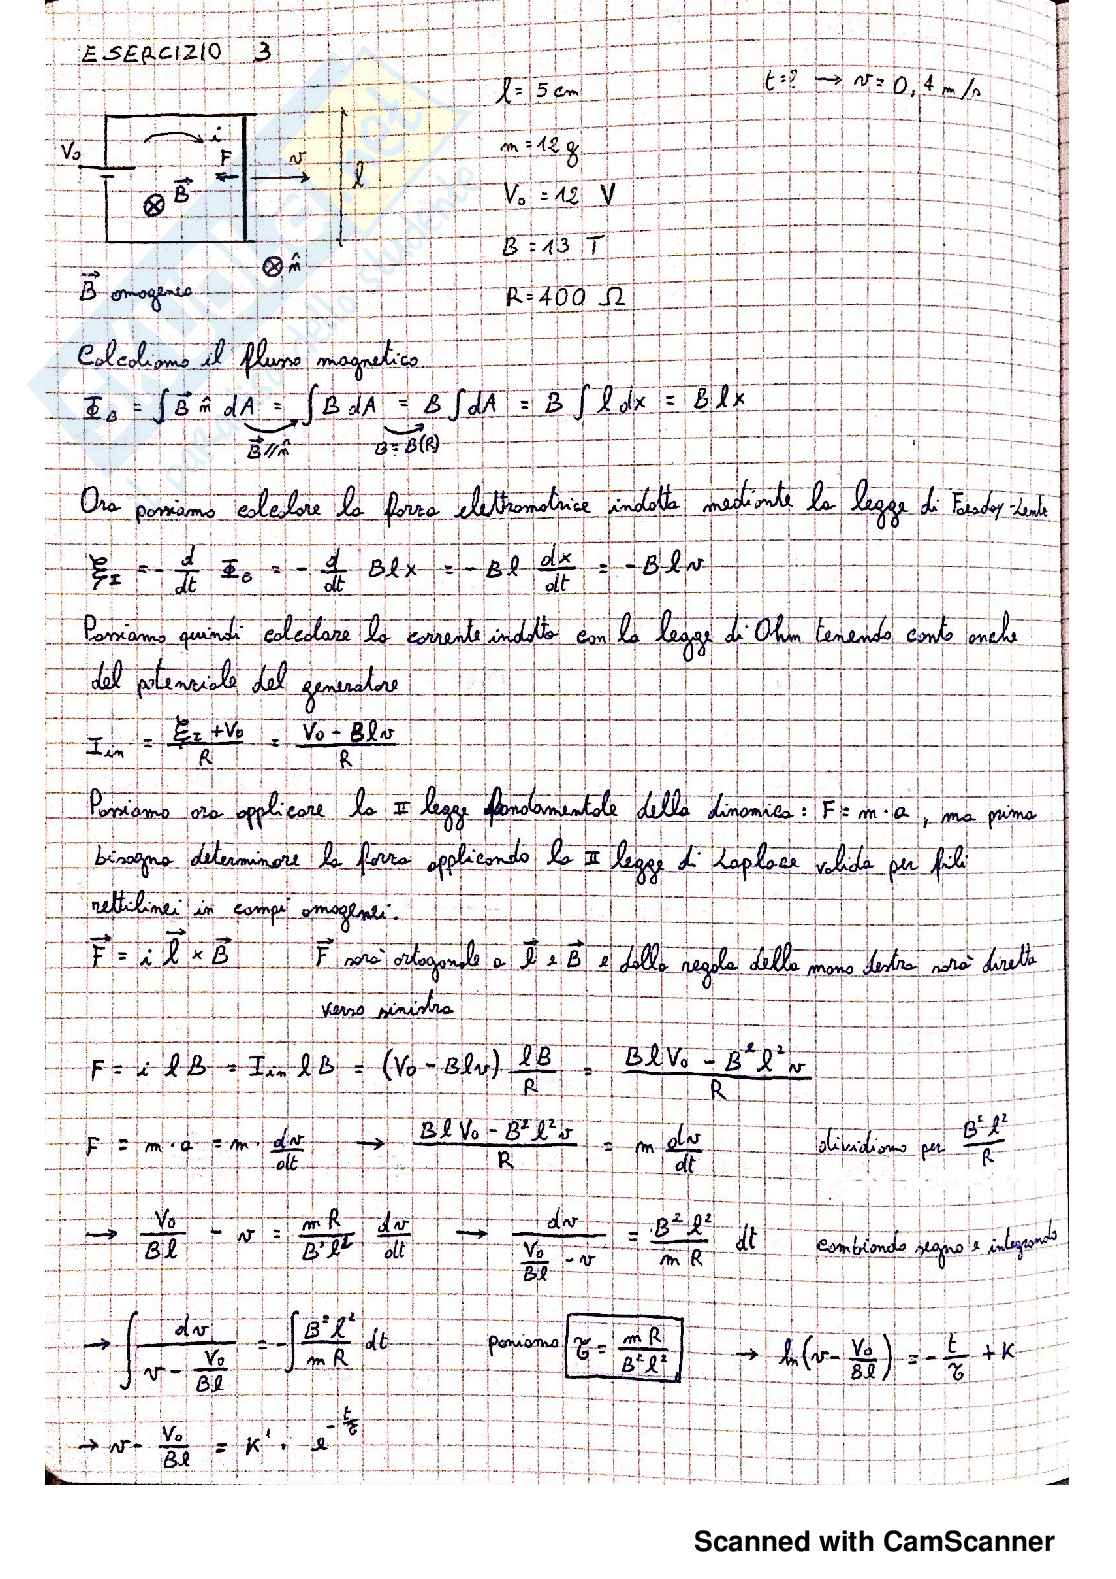 ESERCIZIO 3
l = 5 cm
t=? → v = 0,4 m/s
i
V₀
F
v
l
m = 12 g
⊗ B⃗
V₀ = 12 V
B = 13 T
⊗ n̂
B⃗ omogeneo
R = 400 Ω
Calcoliamo il flusso magnetico
Φ_B = ∫ B⃗ n̂ dA = ∫ B dA = B ∫ dA = B ∫ l dx = B l x
B⃗ // n̂
B = B(R)
Ora possiamo calcolare la forza elettromotrice indotta mediante la legge di Faraday-Lentz
ξ_I = - d/dt Φ_B = - d/dt B l x = - B l dx/dt = - B l v
Possiamo quindi calcolare la corrente indotta con la legge di Ohm tenendo conto anche
del potenziale del generatore
I_in = (ξ_I + V₀)/R = (V₀ - B l v)/R
Possiamo ora applicare la II legge fondamentale della dinamica: F = m · a, ma prima
bisogna determinare la forza applicando la II legge di Laplace valida per fili
rettilinei in campi omogenei.
F⃗ = i l⃗ × B⃗ F⃗ sarà ortogonale a l⃗ e B⃗ e dalla regola della mano destra sarà diretta
verso sinistra
F = i l B = I_in l B = (V₀ - B l v) lB/R = (B l V₀ - B² l² v)/R
F = m · a = m · dv/dt → (B l V₀ - B² l² v)/R = m dv/dt dividiamo per B² l²/R
→ V₀/Bl - v = mR/B² l² dv/dt → dv/(V₀/Bl - v) = B² l²/mR dt cambiando segno e integrando
→ ∫ dv/(v - V₀/Bl) = -∫ B² l²/mR dt poniamo τ = mR/B² l² → ln(v - V₀/Bl) = - t/τ + K
→ v - V₀/Bl = K' · e^(-t/τ)
Scanned with CamScanner